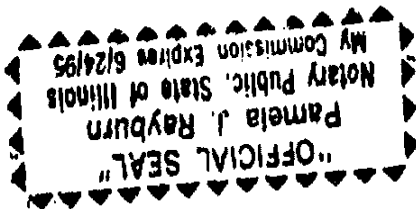 "OFFICIAL SEAL"
Pamela J. Rayburn
Notary Public, State of Illinois
My Commission Expires 6/24/95